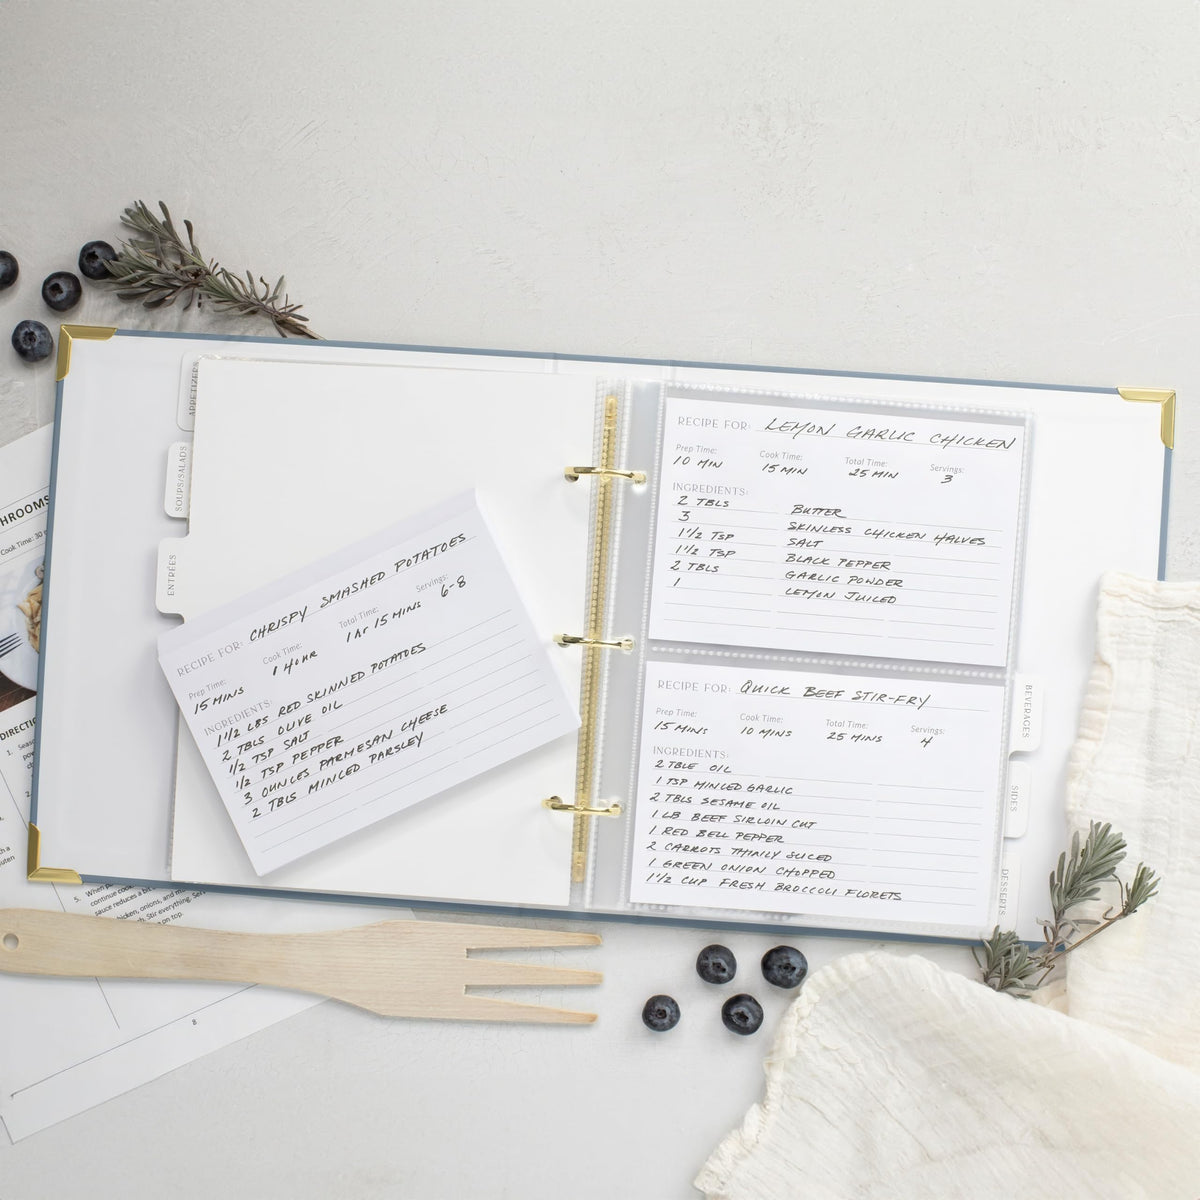 APPETIZERS
SOUPS/SALADS
ENTRÉES
RECIPE FOR: CHRISPY SMASHED POTATOES
Prep Time: Cook Time: Total Time: Servings:
15 MINS 1 HOUR 1 hr 15 MINS 6-8
INGREDIENTS:
1 1/2 LBS RED SKINNED POTATOES
2 TBLS OLIVE OIL
1/2 TSP SALT
1/2 TSP PEPPER
3 OUNCES PARMESAN CHEESE
2 TBLS MINCED PARSLEY
RECIPE FOR: LEMON GARLIC CHICKEN
Prep Time: Cook Time: Total Time: Servings:
10 MIN 15 MIN 25 MIN 3
INGREDIENTS:
2 TBLS BUTTER
3 SKINLESS CHICKEN HALVES
1 1/2 TSP SALT
1 1/2 TSP BLACK PEPPER
2 TBLS GARLIC POWDER
1 LEMON JUICED
RECIPE FOR: QUICK BEEF STIR-FRY
Prep Time: Cook Time: Total Time: Servings:
15 MINS 10 MINS 25 MINS 4
INGREDIENTS:
2 TBLE OIL
1 TSP MINCED GARLIC
2 TBLS SESAME OIL
1 LB BEEF SIRLOIN CUT
1 RED BELL PEPPER
2 CARROTS THINLY SLICED
1 GREEN ONION CHOPPED
1 1/2 CUP FRESH BROCCOLI FLORETS
BEVERAGES
SIDES
DESSERTS
HROOMS
Cook Time: 30
DIRECTIO
1.
5. When
continue cook
sauce reduces a bit
hicken, onions, and
Stir everything.
on top.
8